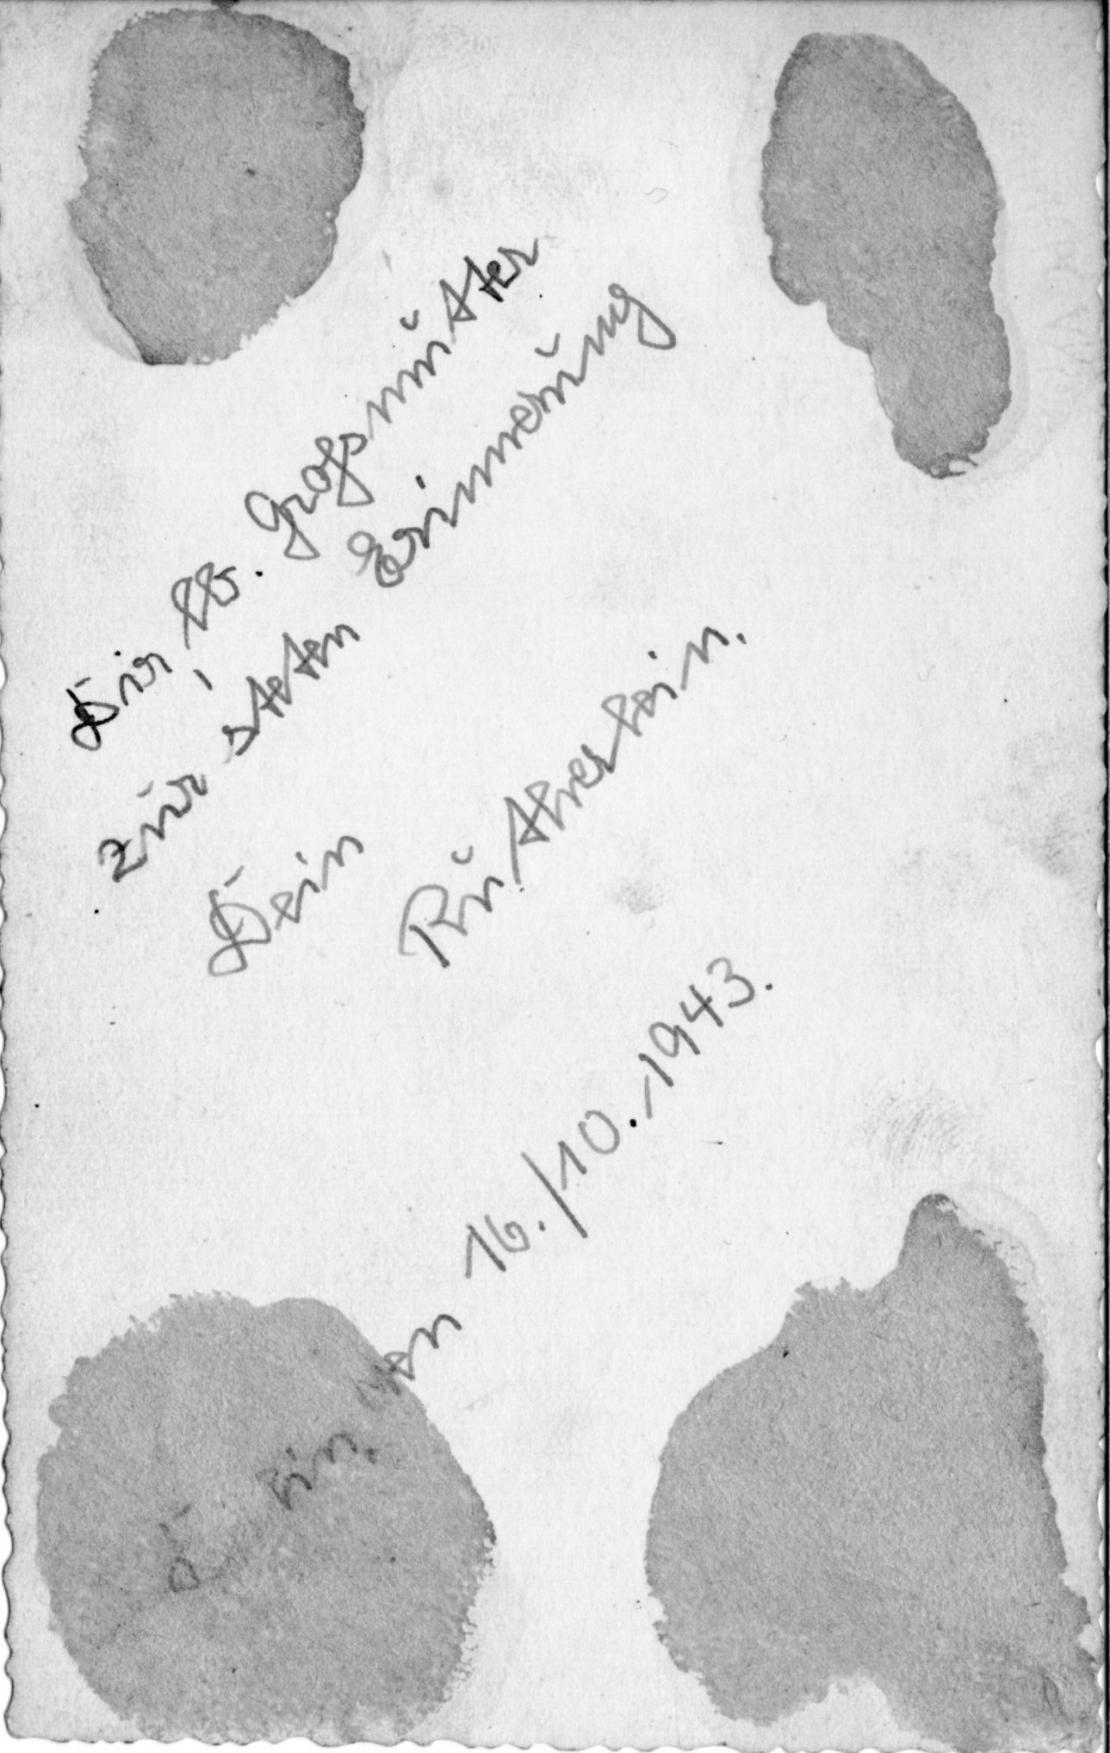 Dir, lb. Großmutter
zur steten Erinnerung
Dein
den 16./10.1943.